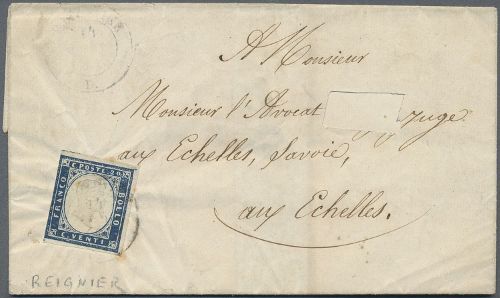 A Monsieur
Monsieur l'Avocat Juge
aux Echelles, Savoie,
aux Echelles.
C. POSTE 20
FRANCO
BOLLO
C. VENTI
REIGNIER